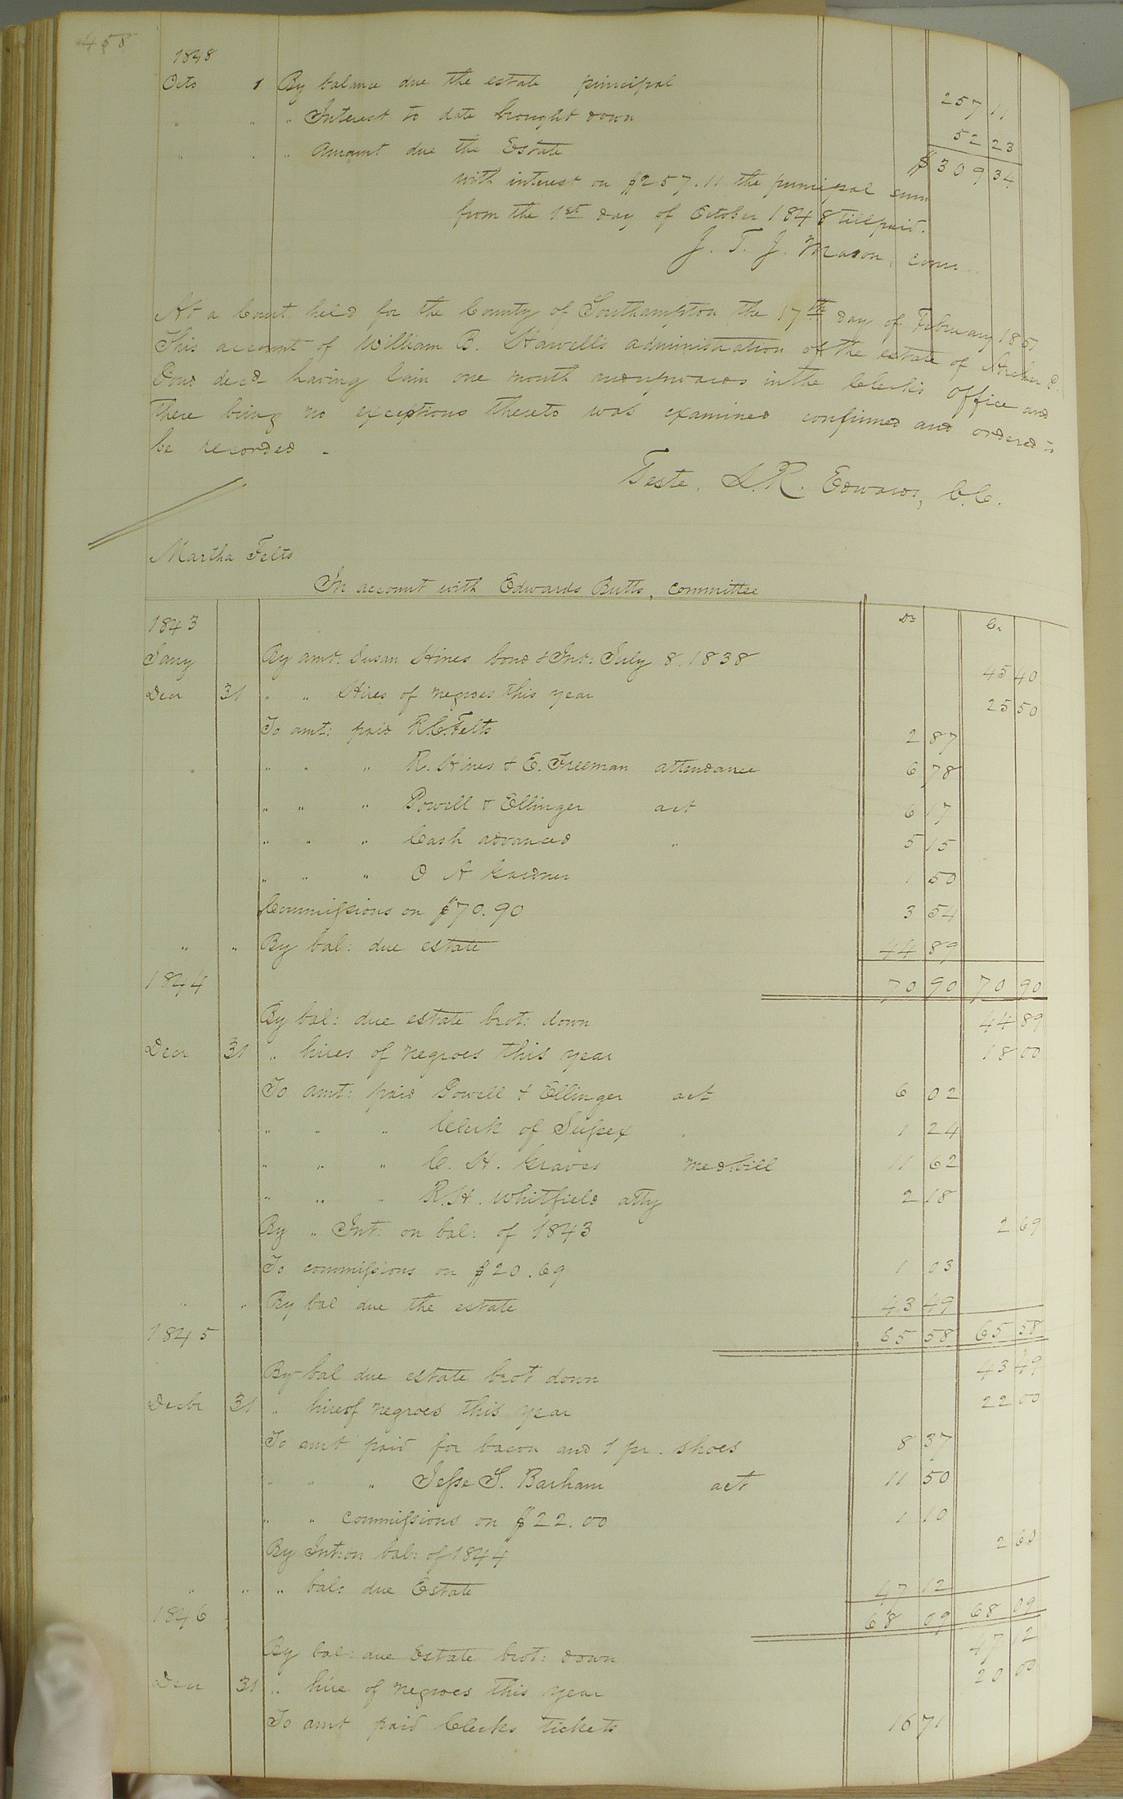 458
1848
Octo 1 By balance due the estate principal 257 11
" " " Interest to date brought down 52 23
" " " Amount due the Estate $309 34
with interest on $257.11 the principal sum
from the 1st day of October 1848 till paid.
J. T. J. Mason, com
At a Court held for the County of Southampton the 17th day of February 185
This account of William B. Howell's administration of the estate of
decd having lain one month and upwards in the Clerk's office and
there being no exceptions thereto was examined confirmed and ordered to
be recorded.
Teste, L.R. Edwards, C.C.
Martha Felts
In account with Edwards Butts, committee
1843 Dr Cr
Jany By amt: Susan Hines bond & Int: July 8. 1838 45 40
Decr 31 " " Hires of negroes this year 25 50
To amt: paid R.C. Felts 2 87
" " " R. Hines & E. Freeman attendance 6 78
" " " Powell & Ellinger act 6 17
" " " Cash advanced " 5 15
" " " O A Gardner 1 50
Commissions on $70.90 3 54
" " By bal: due estate 44 89
1844 70 90 70 90
By bal: due estate brot: down 44 89
Decr 31 " hires of negroes this year 18 00
To amt: paid Powell & Ellinger act 6 02
" " " Clerk of Sussex " 1 24
" " " C. H. Graves med bill 11 62
" " " R.H. Whitfield atty 2 18
By " Int: on bal: of 1843 2 69
To commissions on $20.69 1 03
" " By bal due the estate 43 49
1845 65 58 65 58
By bal due estate brot down 43 49
Decbr 31 " hire of negroes this year 22 00
To amt paid for bacon and 1 pr. shoes 8 37
" " " Jesse S. Barham act 11 50
" " commissions on $22.00 1 10
By Int: on bal: of 1844 2 60
" " " bal: due Estate 47 12
1846 68 09 68 09
By bal: due Estate brot: down 47 12
Decr 31 " hire of negroes this year 20 00
To amt paid Clerks tickets 16 71